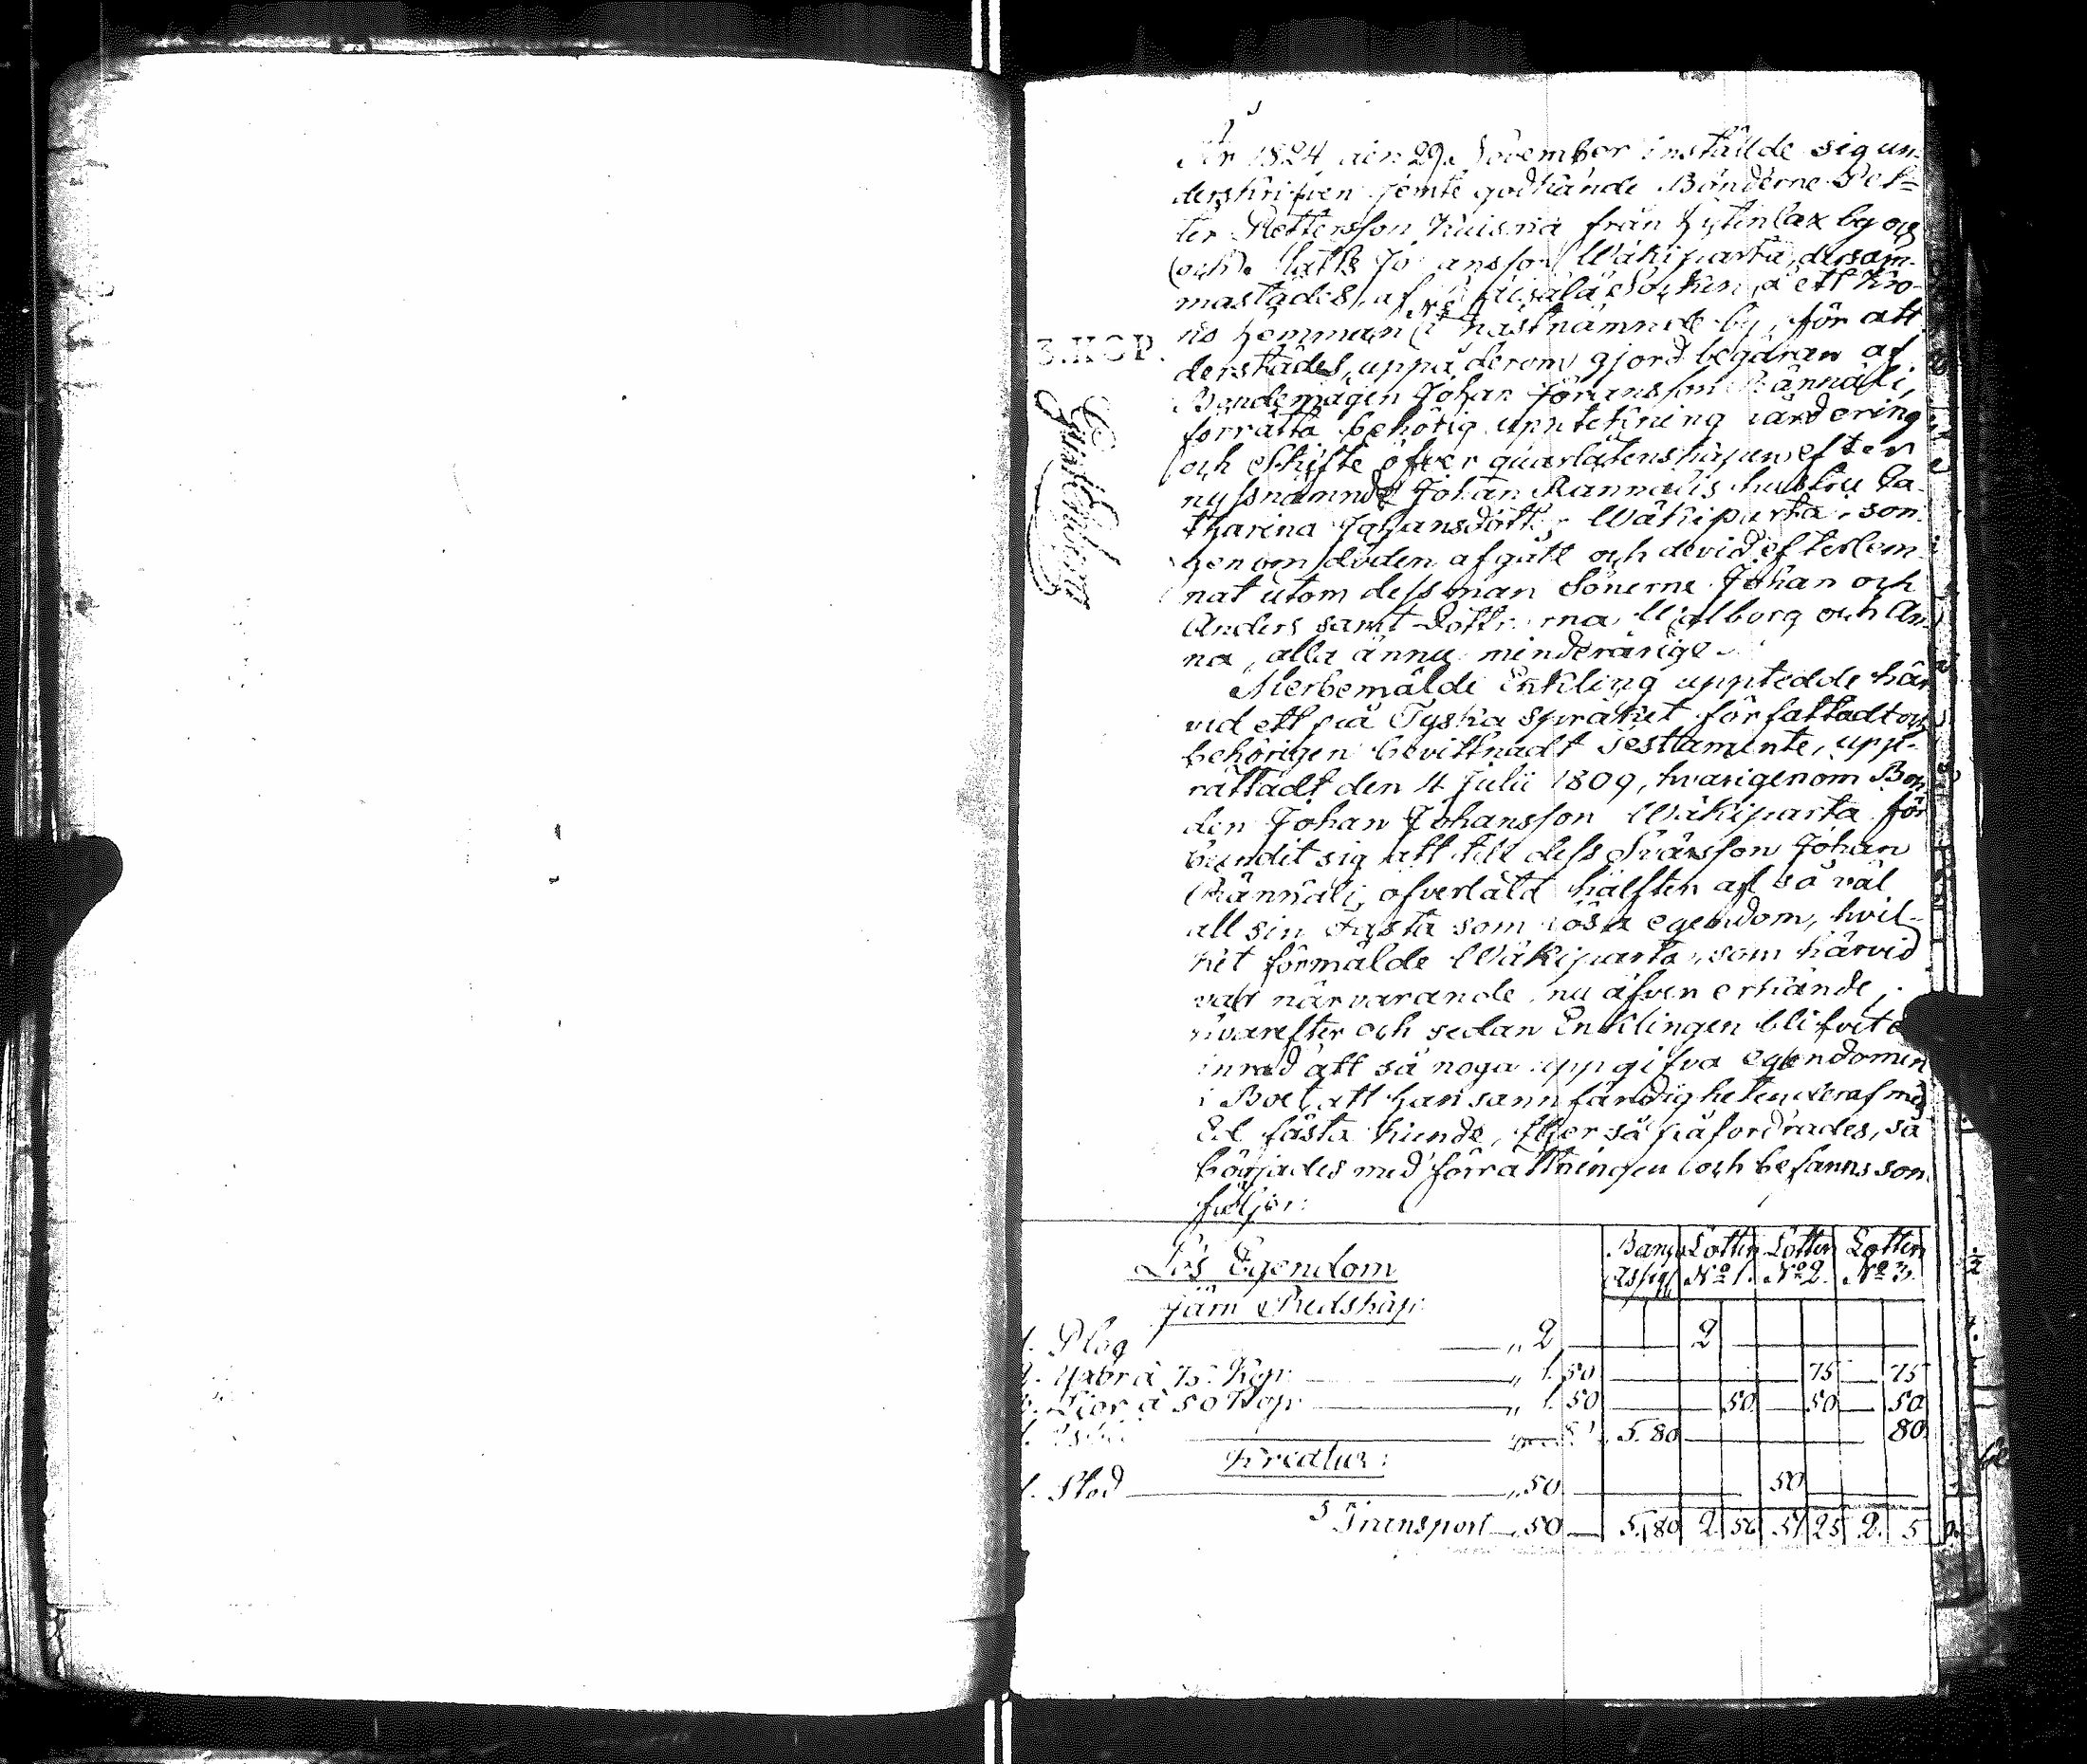 År 1824 den 29. November instälde sig un-
derskrifven jemte godkände Bönderne Pet=
ter Pettersson Kuisma från Kytenlax by och
(och). Matts Johansson Wäkiparta, dersam-
mastädes, af Socken, å ett Kro-
no Hemman i näst nämnde by, för att
derstädes, uppå derom gjord begäran af
Bondemågen Johan Jöransson Rännäli,
förrätta behörig uppteckning värdering
och Skifte öfver quarlåtenskapen efter
nyssnämnde Johan Rännälis hustru Ca-
tharina Johansdotter Wäkiparta, som
genom döden afgått och devid efterlem-
nat utom dess man Sönerne Johan och
Anders samt Döttrarna Walborg och An-
na, alla ännu minderårige.
Merbemälde Enkling upptedde här
vid ett på Tyska språket författadt och
behörigen bevittnadt Testtamente, upp-
rättadt den 4 Julii 1809, hvarigenom Bon
den Johan Johansson Wäkiparta för
bundit sig att till dess Svärsson Johan
Rännäli, öfverlåtd hälften af så väl
all sin fasta som lösa egendom, hvil-
ket förmälde Wäkiparta, som härvid
var närvarande nu äfven erkände,
hvarefter och sedan Enklingen blifvit
inrad att så noga uppgifva egendomen
i Boet att han sannfärdigheten deraf med
Ed fästa kunde, ther så påfordrades, så
börjades med förrättningen och befanns som
följer:
3.KOP.
Lös Egendom
Banco Assign Lotten No 1. Lotten No 2. Lotten No 3.
Järn Redskap
1. Plog „ 2 2
2. Yxor à 75. Kop. „ 1. 50 75 75
3. Lior à 50 Kop. „ 1. 50 50 50 50
5. 80 80
Kreatur:
1. Stod „ 50 50
Transport „ 50 5. 80 2. 50 51 25 2. 5